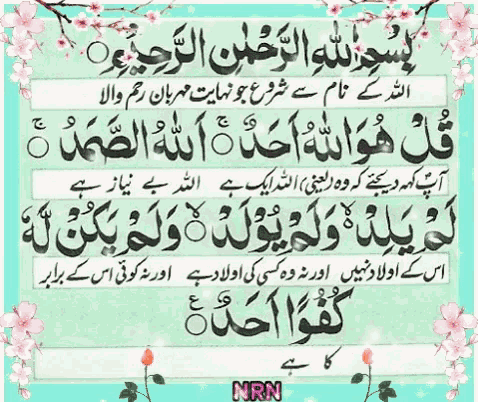 بِسْمِ اللهِ الرَّحْمٰنِ الرَّحِيْمِ ○
اللہ کے نام سے شروع جو نہایت مہربان رحم والا
قُلْ هُوَ اللهُ اَحَدٌ ۚ○ اَللهُ الصَّمَدُ ۚ○
آپ کہہ دیجئے کہ وہ (یعنی) اللہ ایک ہے اللہ بے نیاز ہے
لَمْ يَلِدْ ۙ وَلَمْ يُوْلَدْ ۙ○ وَلَمْ يَكُنْ لَّهٗ
اس کے اولاد نہیں اور نہ وہ کسی کی اولاد ہے اور نہ کوئی اس کے برابر
كُفُوًا اَحَدٌ ○ ع
کا ہے
NRN